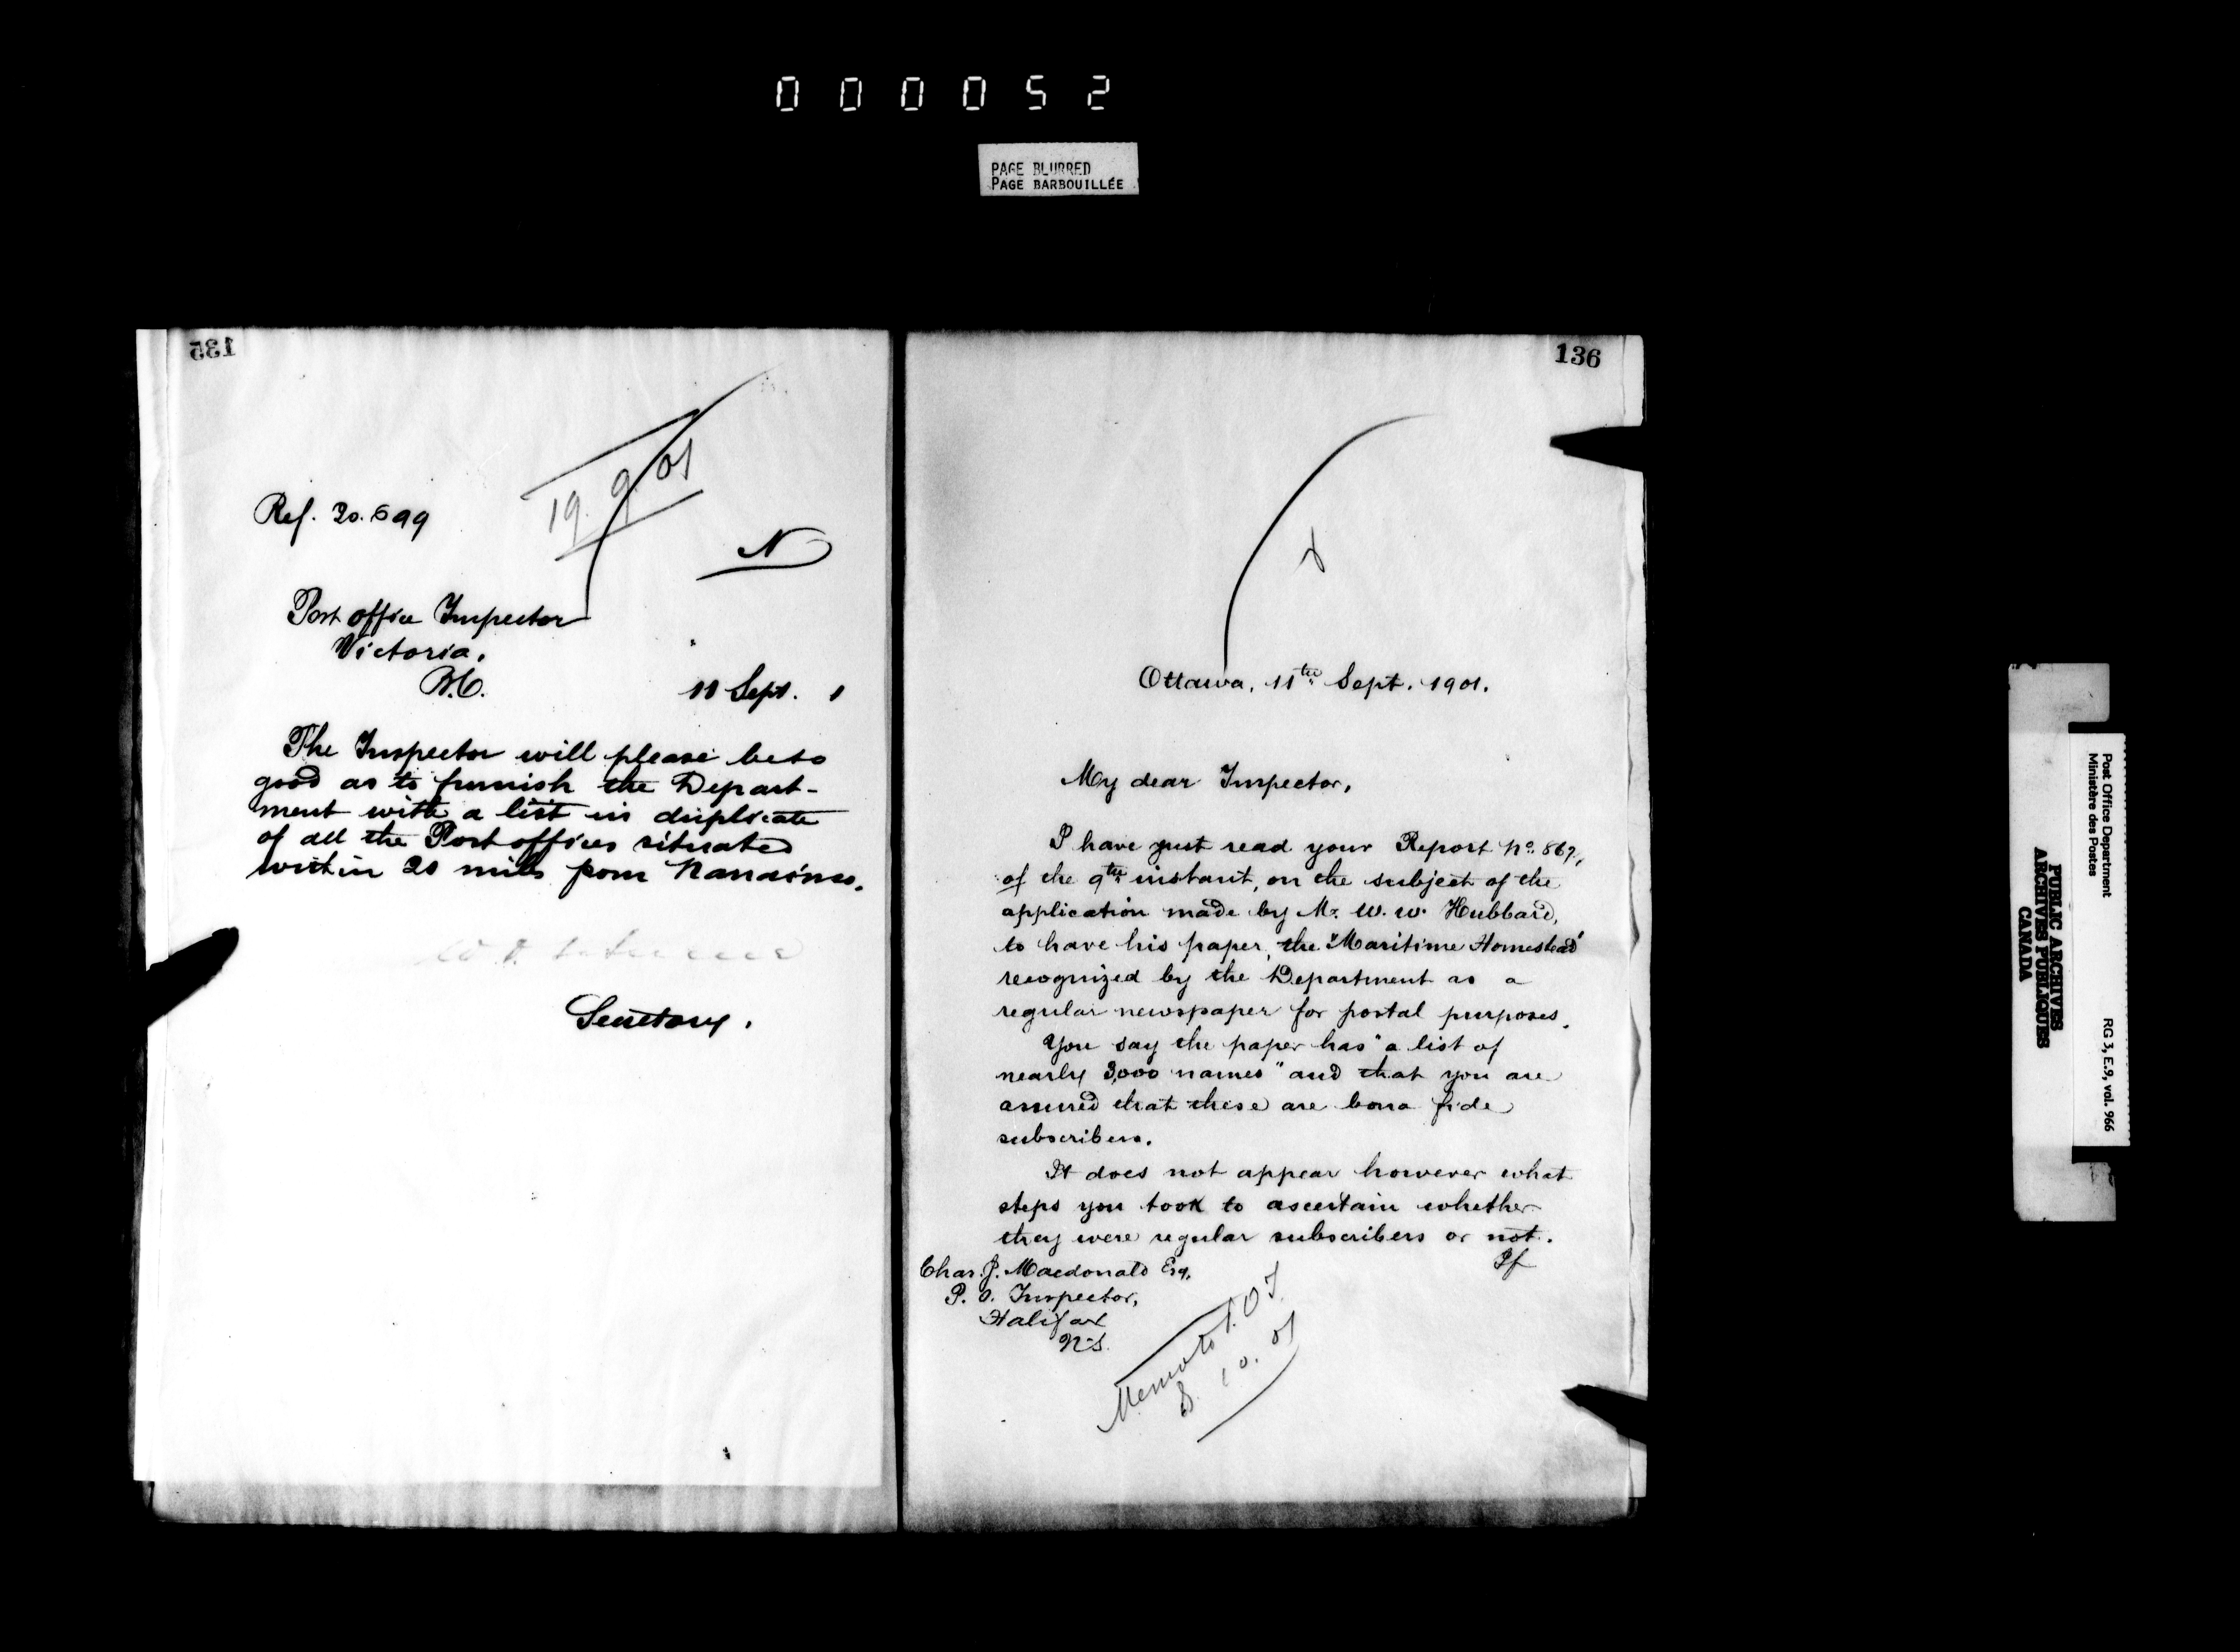 000052
PAGE BLURRED
PAGE BARBOUILLÉE
135
19.9.01
Ref. 20.699
N
Post office Inspector
Victoria,
B.C.
11 Sept. 1
The Inspector will please be so
good as to furnish the Depart-
ment with a list in duplicate
of all the Post offices situated
within 20 miles from Nanaimo.
Secretary.
136
Ottawa, 11th Sept. 1901.
My dear Inspector,
I have just read your Report No. 867,
of the 9th instant, on the subject of the
application made by Mr. W. W. Hubbard,
to have his paper, the "Maritime Homestead"
recognized by the Department as a
regular newspaper for postal purposes.
You say the paper has "a list of
nearly 3,000 names" and that you are
assured that these are bona fide
subscribers.
It does not appear however what
steps you took to ascertain whether
they were regular subscribers or not.
If
Chas. J. Macdonald Esq.
P. O. Inspector,
Halifax
N.S.
Memo to
8.10.01
Post Office Department
Ministère des Postes
RG 3, E.9, vol. 966
PUBLIC ARCHIVES
ARCHIVES PUBLIQUES
CANADA